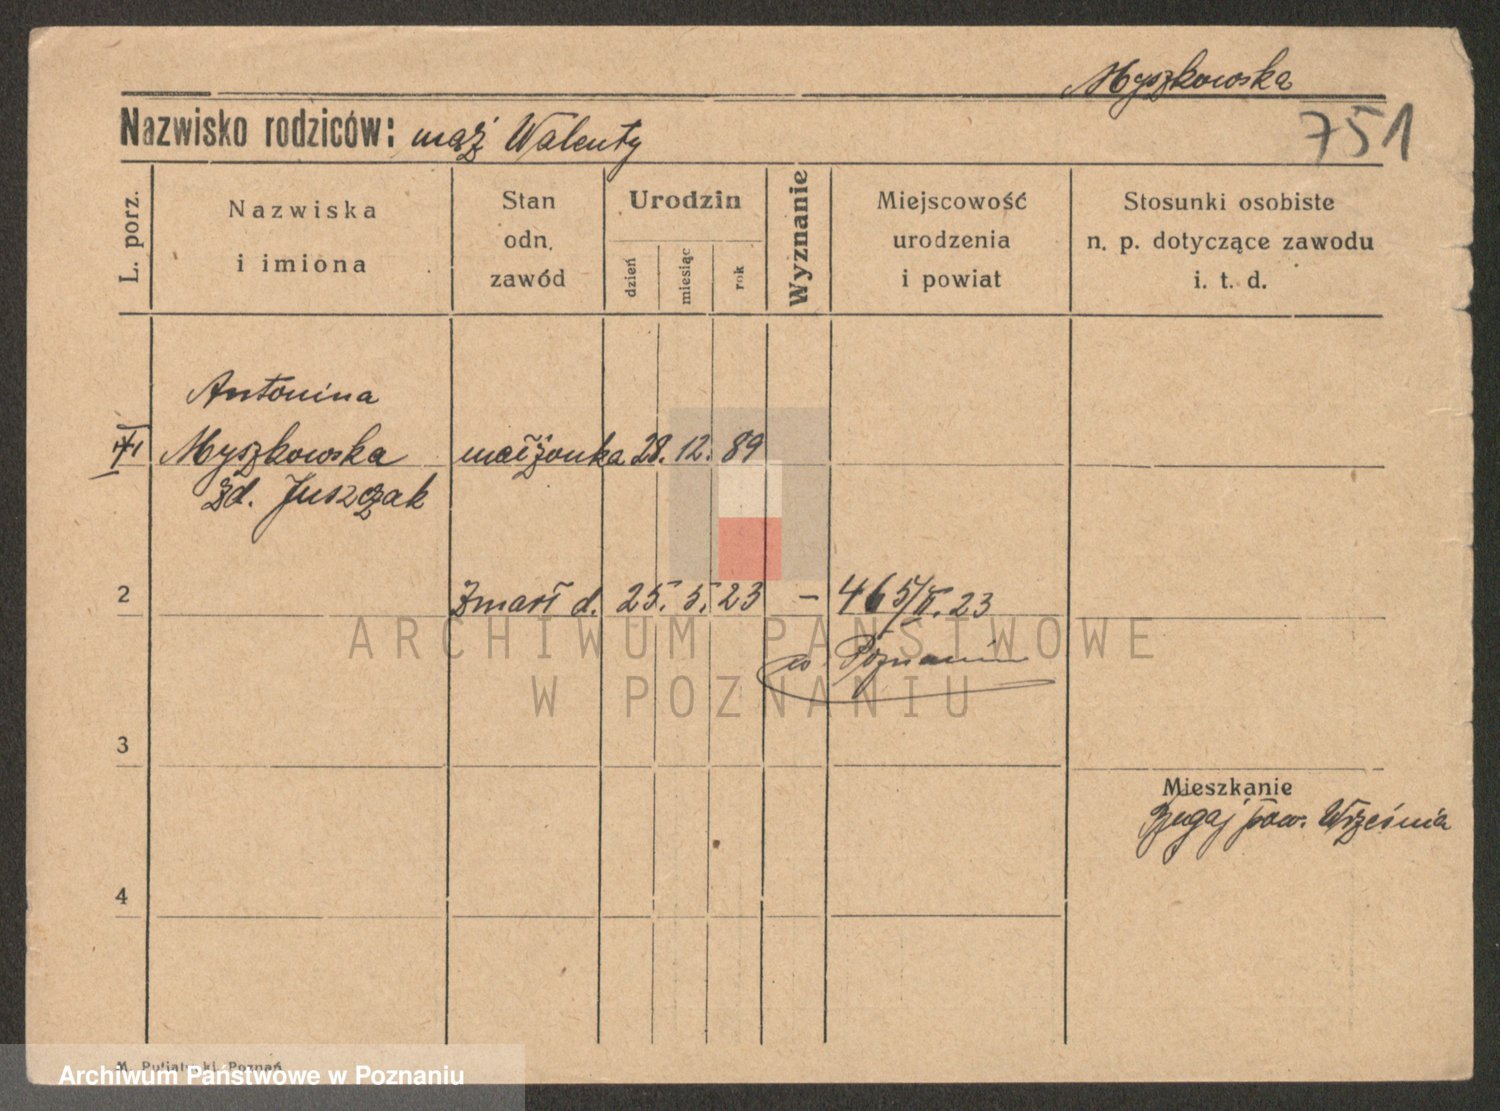 Myszkowska
Nazwisko rodziców: mąż Walenty
751
L. porz.
Nazwiska
i imiona
Stan
odn.
zawód
Urodzin
dzień
miesiąc
rok
Wyznanie
Miejscowość
urodzenia
i powiat
Stosunki osobiste
n. p. dotyczące zawodu
i. t. d.
Antonina
Myszkowska małżonka 28. 12. 89
zd. Juszczak
2 Zmarł d. 25. 5. 23 — 465/II. 23
w Poznaniu
ARCHIWUM PAŃSTWOWE
W POZNANIU
3
Mieszkanie
pow. Września
4
Poznań
Archiwum Państwowe w Poznaniu